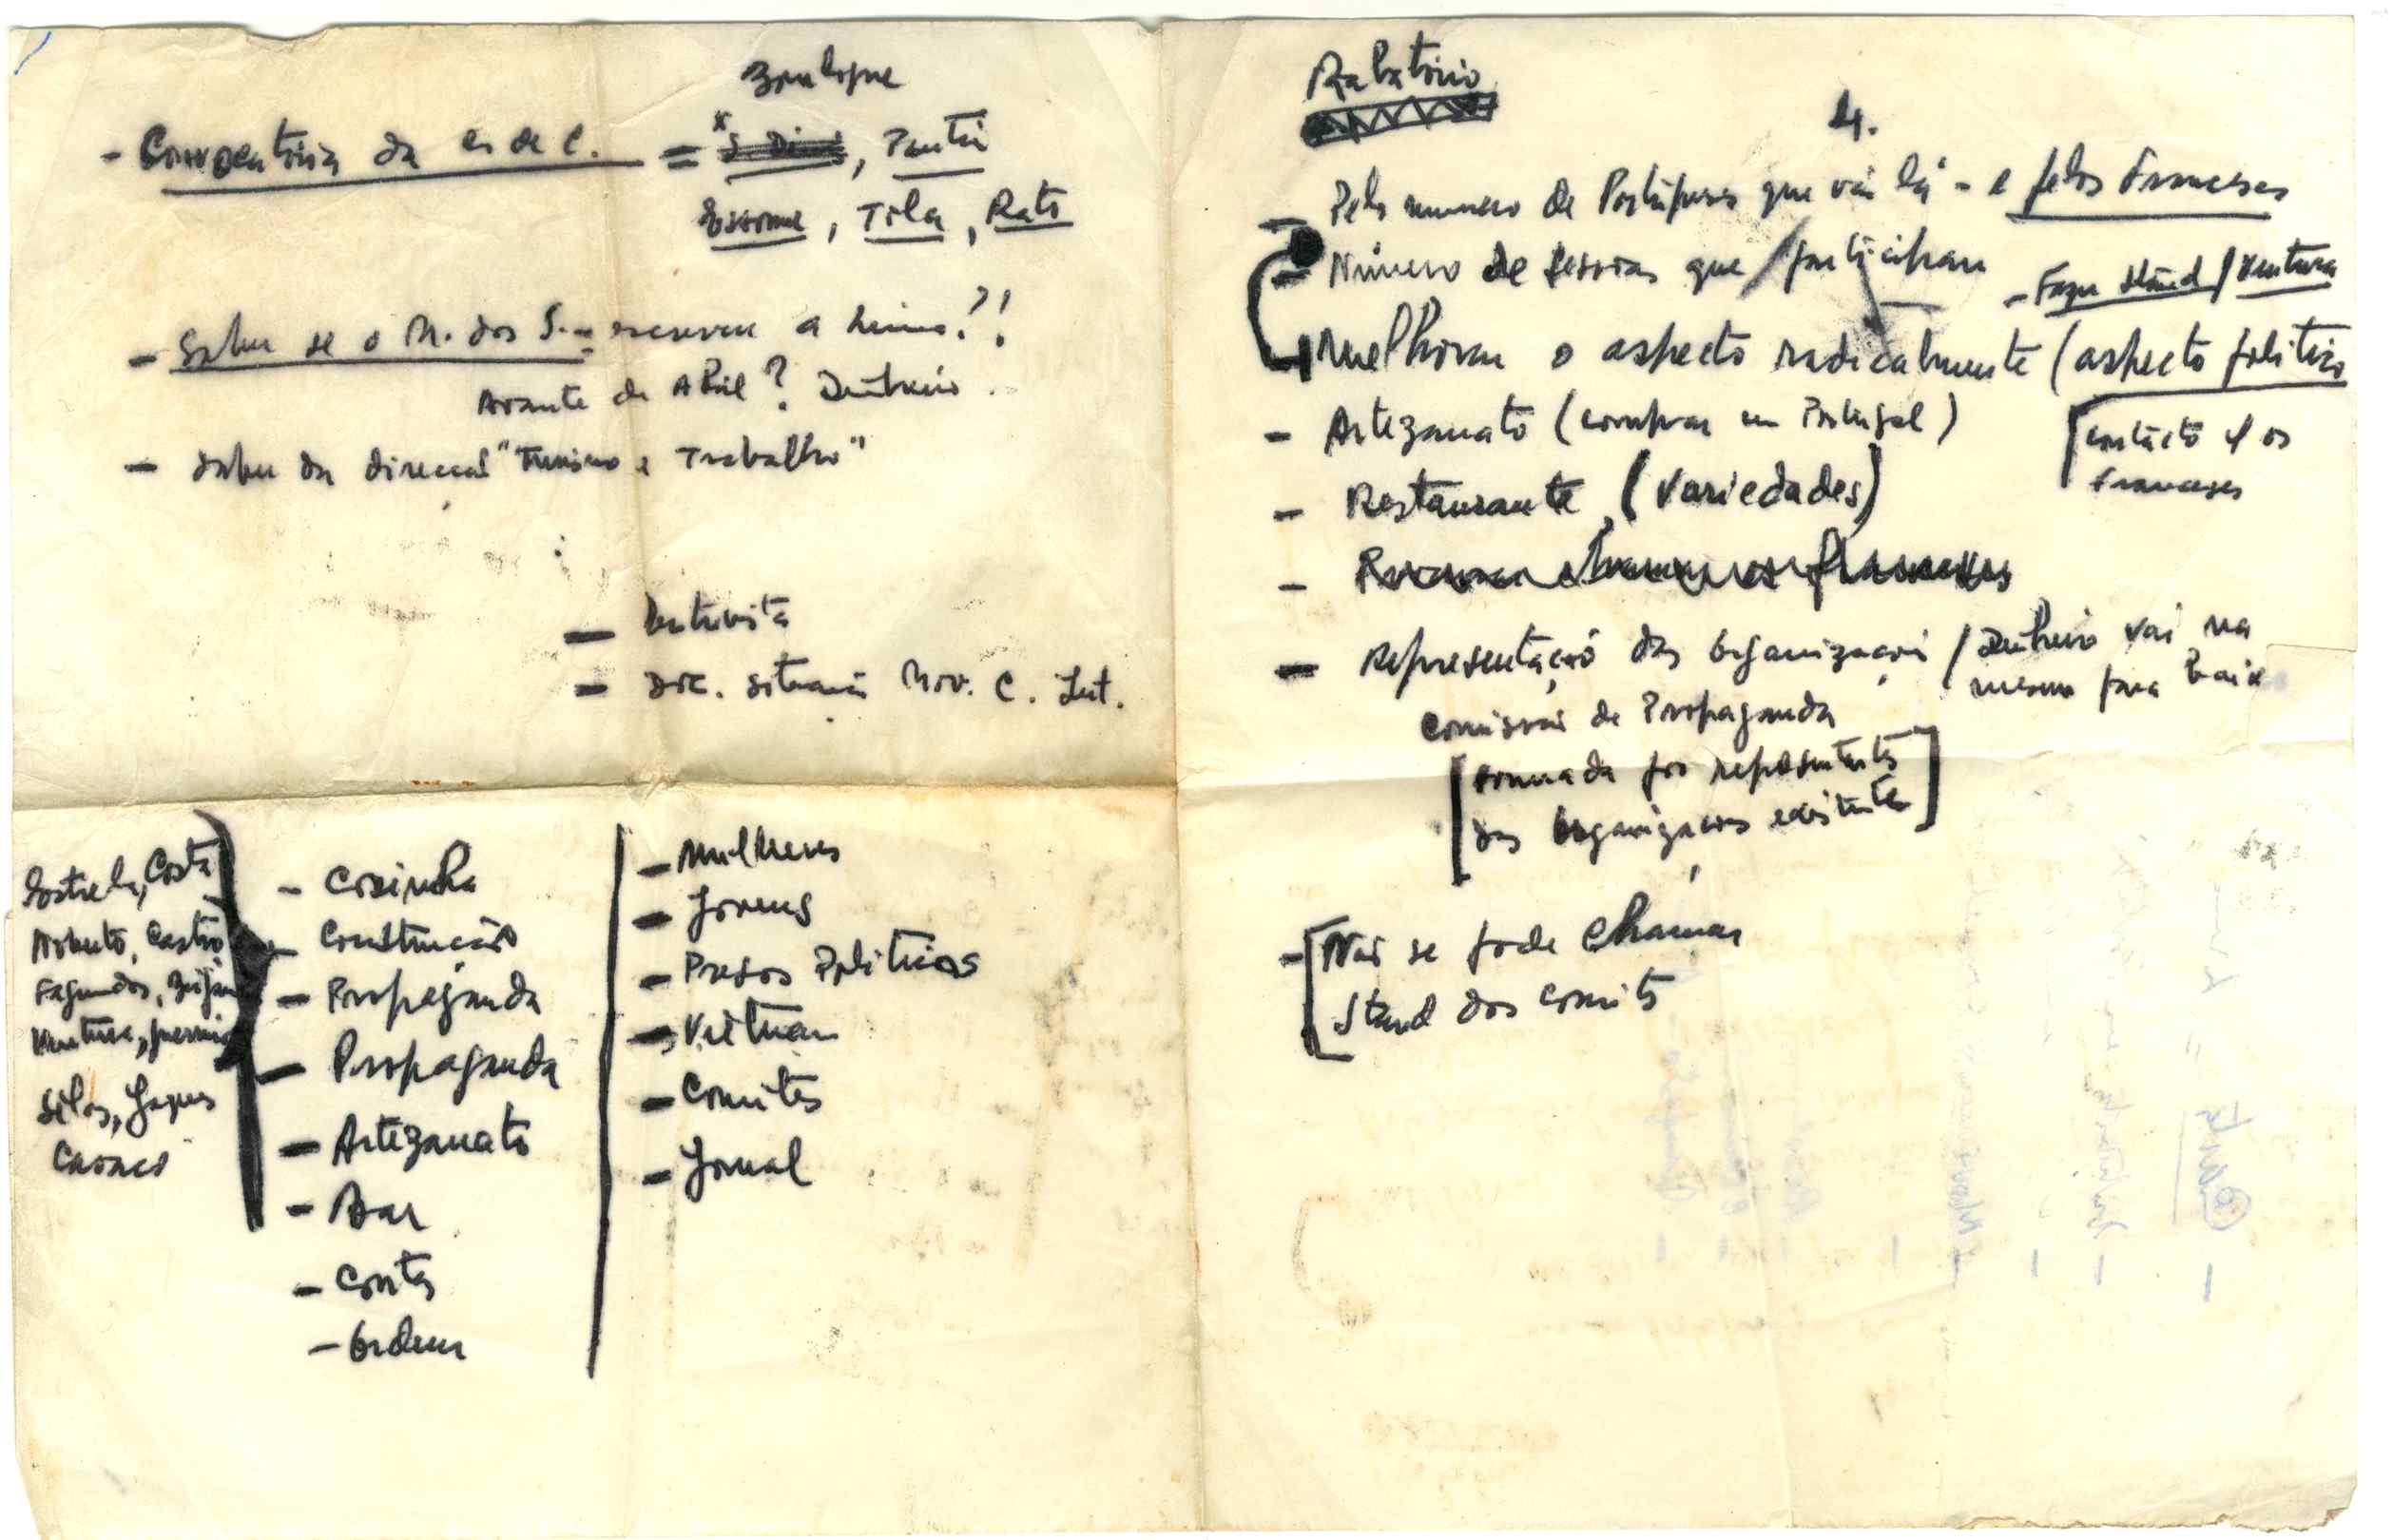 - Convocatória da C. de C. =
, Tila, Rato
- Saber se o M. dos S. - escreveu a
Avante de Abril? Dinheiro
- Saber da direcção "Turismo e Trabalho"
- Entrevista
- Doc. situação Mov. C. Int.
Estrela, Costa
Norberto, Castro
Fagundes,
Ventura,
Silas, Jaques
Casaco
- Cosinha
- Construção
- Propaganda
- Propaganda
- Artezanato
- Bar
- Contas
- Ordem
- Mulheres
- Jovens
- Presos Politicos
- Vietnam
- Comités
- Jornal
Relatório
4.
- Pelo numero de Portugueses que vai lá - e pelos Franceses
- Número de pessoas que participam
- Fazer stand / Ventura
- Melhorar o aspecto radicalmente (aspecto politico
contacto c/ os
Franceses
- Artezanato (comprar em Portugal)
- Restaurante (Variedades)
- Representação das Organizações / Dinheiro vai na
mesma para baixo
Comissão de Propaganda
[formada por representantes
das Organizações existentes]
- [Não se pode chamar
Stand dos Comités